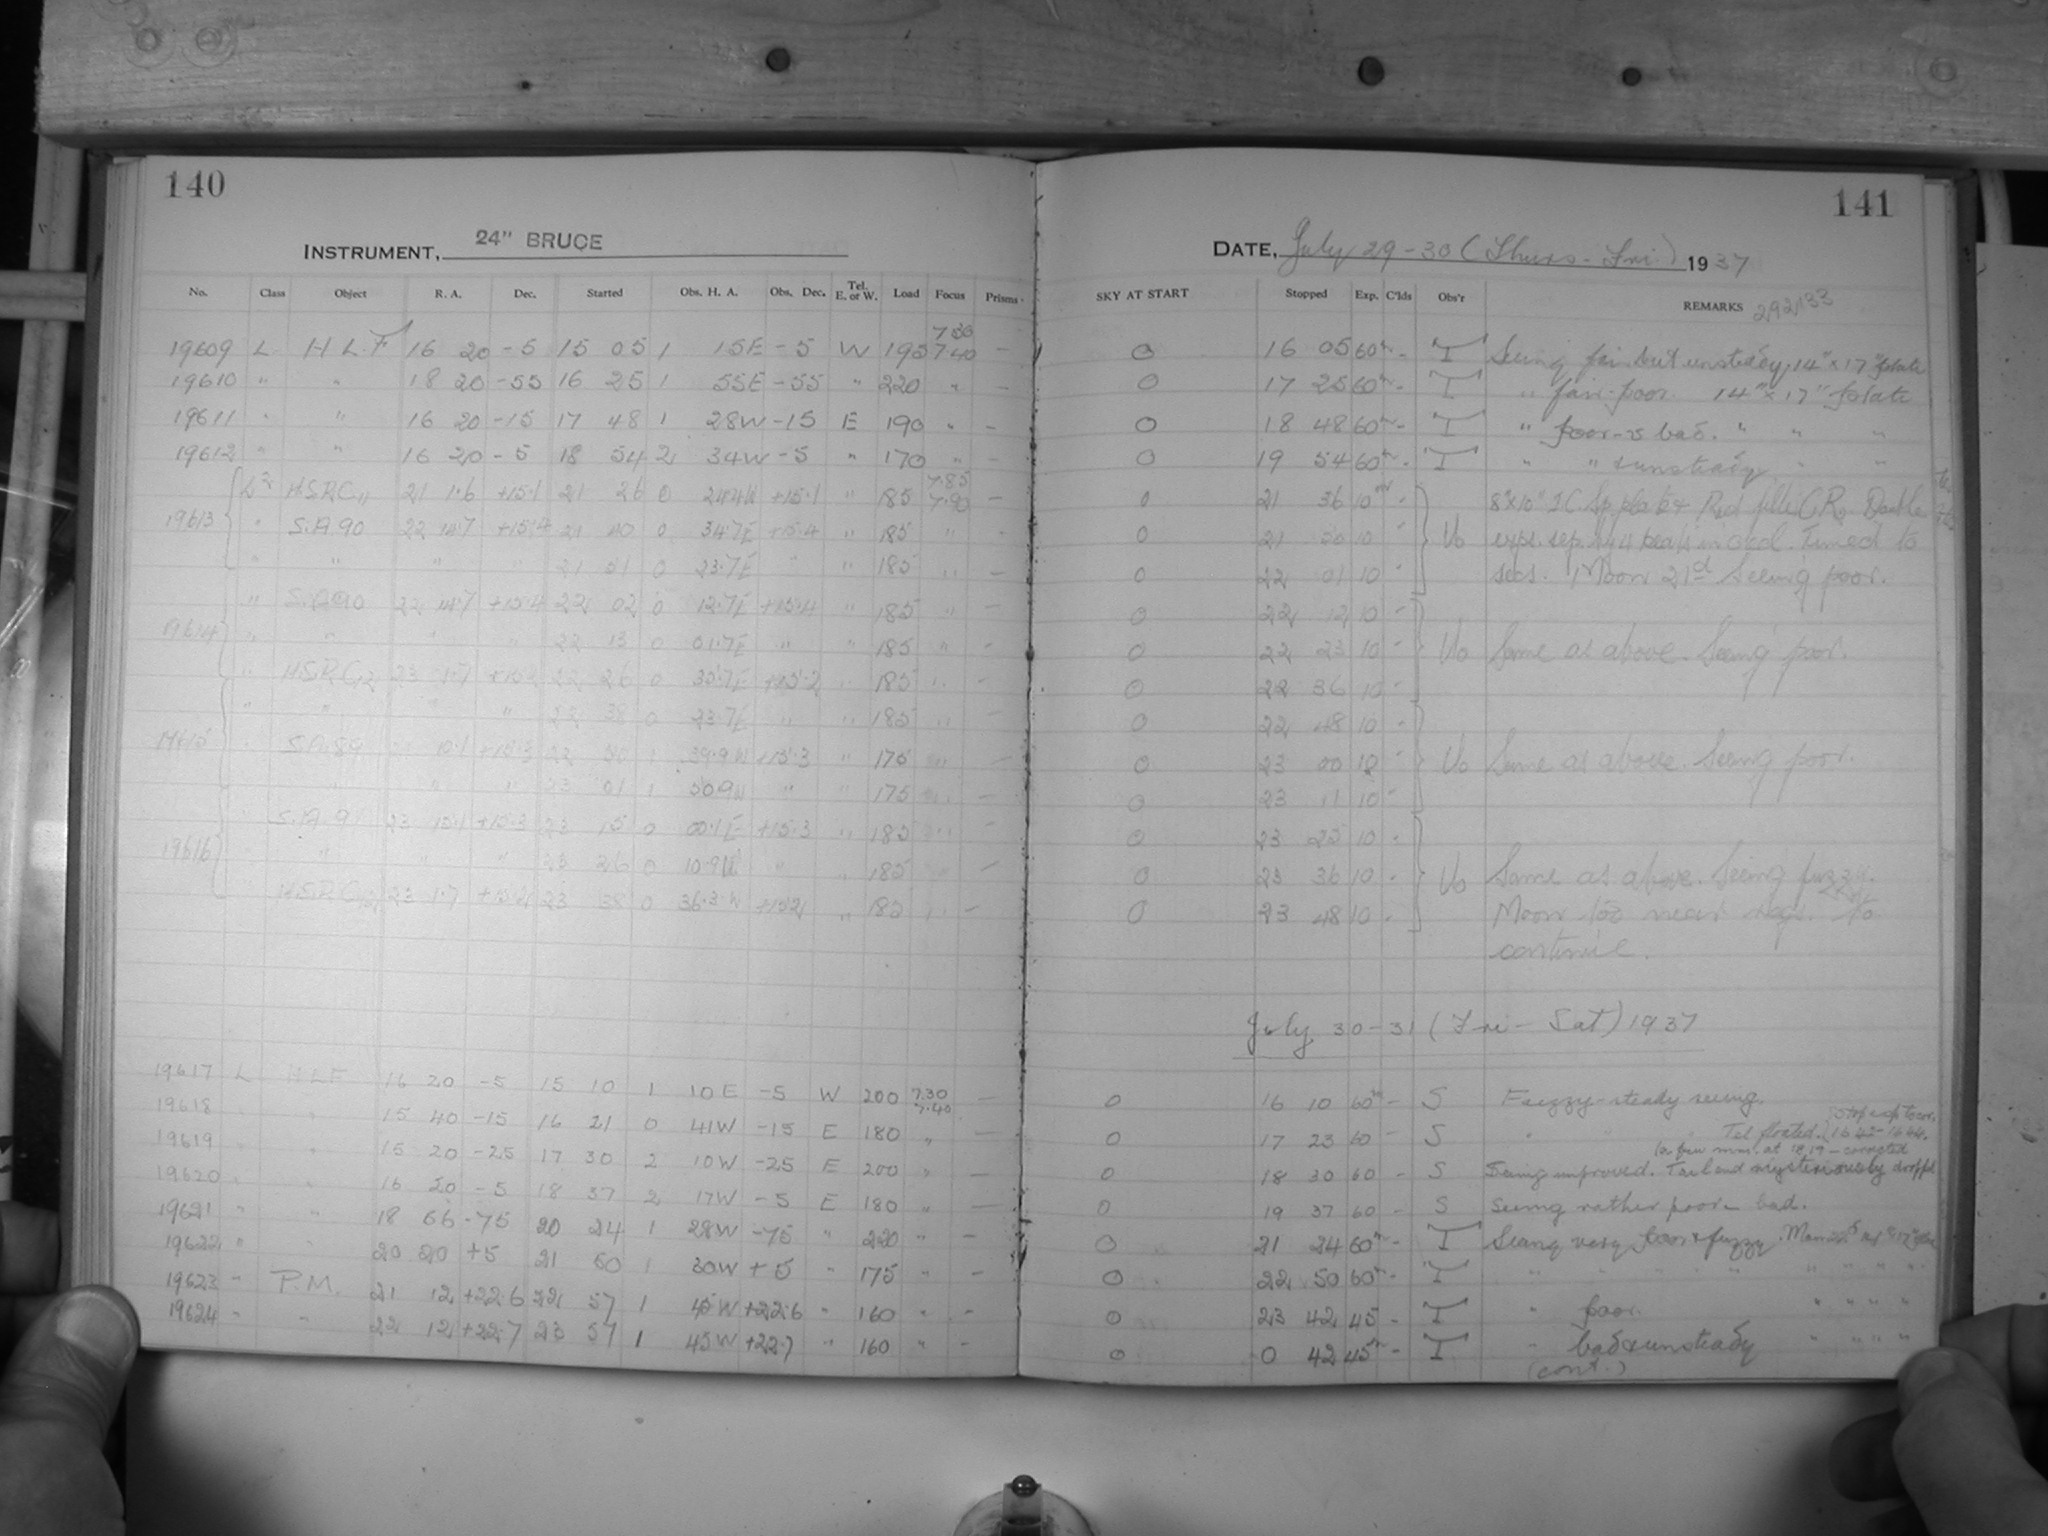 140
INSTRUMENT, 24" BRUCE
No. Class Object R. A. Dec. Started Obs. H. A. Obs. Dec. Tel. E. or W. Load Focus Prisms
7.30
19609 L HLF 16 20 -5 15 05 1 15E -5 W 195 7.40 -
19610 " " 18 20 -55 16 25 1 55E -55 " 220 " -
19611 " " 16 20 -15 17 48 1 28W -15 E 190 " -
19612 " " 16 20 -5 18 54 2 34W -5 " 170 " -
7.85
21 1.6 +15.1 21 26 0 +15.1 " 185 7.90 -
19613 " S.A 90 22 14.7 +15.4 21 40 0 34.7E +15.4 " 185 " -
" " " " 0 23.7E " " 185 " -
" S.A 90 22 14.7 +15.4 22 02 0 12.7E +15.4 " 185 " -
19614 " " " " 22 13 0 01.7E " " 185 " -
" 23 1.7 +15.2 22 26 0 35.7E +15.2 " 185 " -
" " " " 22 38 0 23.7E " " 185 " -
19615 S.A.89 10.1 +15.3 22 50 1 39.9W +15.3 " 175 " -
" " " 23 01 1 50.9W " " 175 " -
23 15.1 +15.3 23 15 0 00.1E +15.3 " 185 " -
19616 " " " 23 26 0 10.9W " " 185 " -
23 1.7 +15.2 23 38 0 36.3W +15.2 " 185 " -
19617 L HLF 16 20 -5 15 10 1 10E -5 W 200 7.30 -
7.40
19618 " 15 40 -15 16 21 0 41W -15 E 180 " -
19619 " " 15 20 -25 17 30 2 10W -25 E 200 " -
19620 " " 16 20 -5 18 37 2 17W -5 E 180 " -
19621 " " 18 -75 20 24 1 28W -75 " 220 " -
19622 " " 20 20 +5 21 50 1 30W +5 " 175 " -
19623 " P.M. 21 12 +22.6 22 57 1 45W +22.6 " 160 " -
19624 " " 22 12 +22.7 23 57 1 45W +22.7 " 160 " -
141
DATE, July 29-30 (Thurs-Fri.) 1937
SKY AT START Stopped Exp. C'lds Obs'r REMARKS 292,133
0 16 05 60m - T Seeing fair but unsteady, 14" x 17" plate
0 17 25 60m - T " fair-poor 14" x 17" plate
0 18 48 60m - T " poor-bad. " " "
0 19 54 60m - T " " + unsteady " "
0 21 36 10m - 8"x10" Double
0 21 50 10 " Vo exps. sep. by in decl. Timed to
0 22 01 10 - secs. Moon 21d Seeing poor.
0 22 12 10 -
0 22 23 10 - Vo Same as above. Seeing poor.
0 22 36 10 -
0 22 48 10 -
0 23 00 10 - Vo Same as above. Seeing poor.
0 23 11 10 -
0 23 25 10 -
0 23 36 10 - Vo Same as above. Seeing fuzzy.
0 23 48 10 - Moon too near regs. to
continue.
July 30-31 (Fri-Sat) 1937
0 16 10 60m - S Fuzzy-steady seeing.
0 17 23 60 - S " " Tel floated.
(a few mm. at 18 19 - corrected
0 18 30 60 - S Seeing improved. Tail end mysteriously dropped
0 19 37 60 - S Seeing rather poor - bad.
0 21 24 60m - T Seeing very poor & fuzzy.
0 22 50 60m - T " " " " " " "
0 23 42 45 - T " poor. " " " "
0 0 42 45m - T " bad & unsteady " " " "
(cont.)